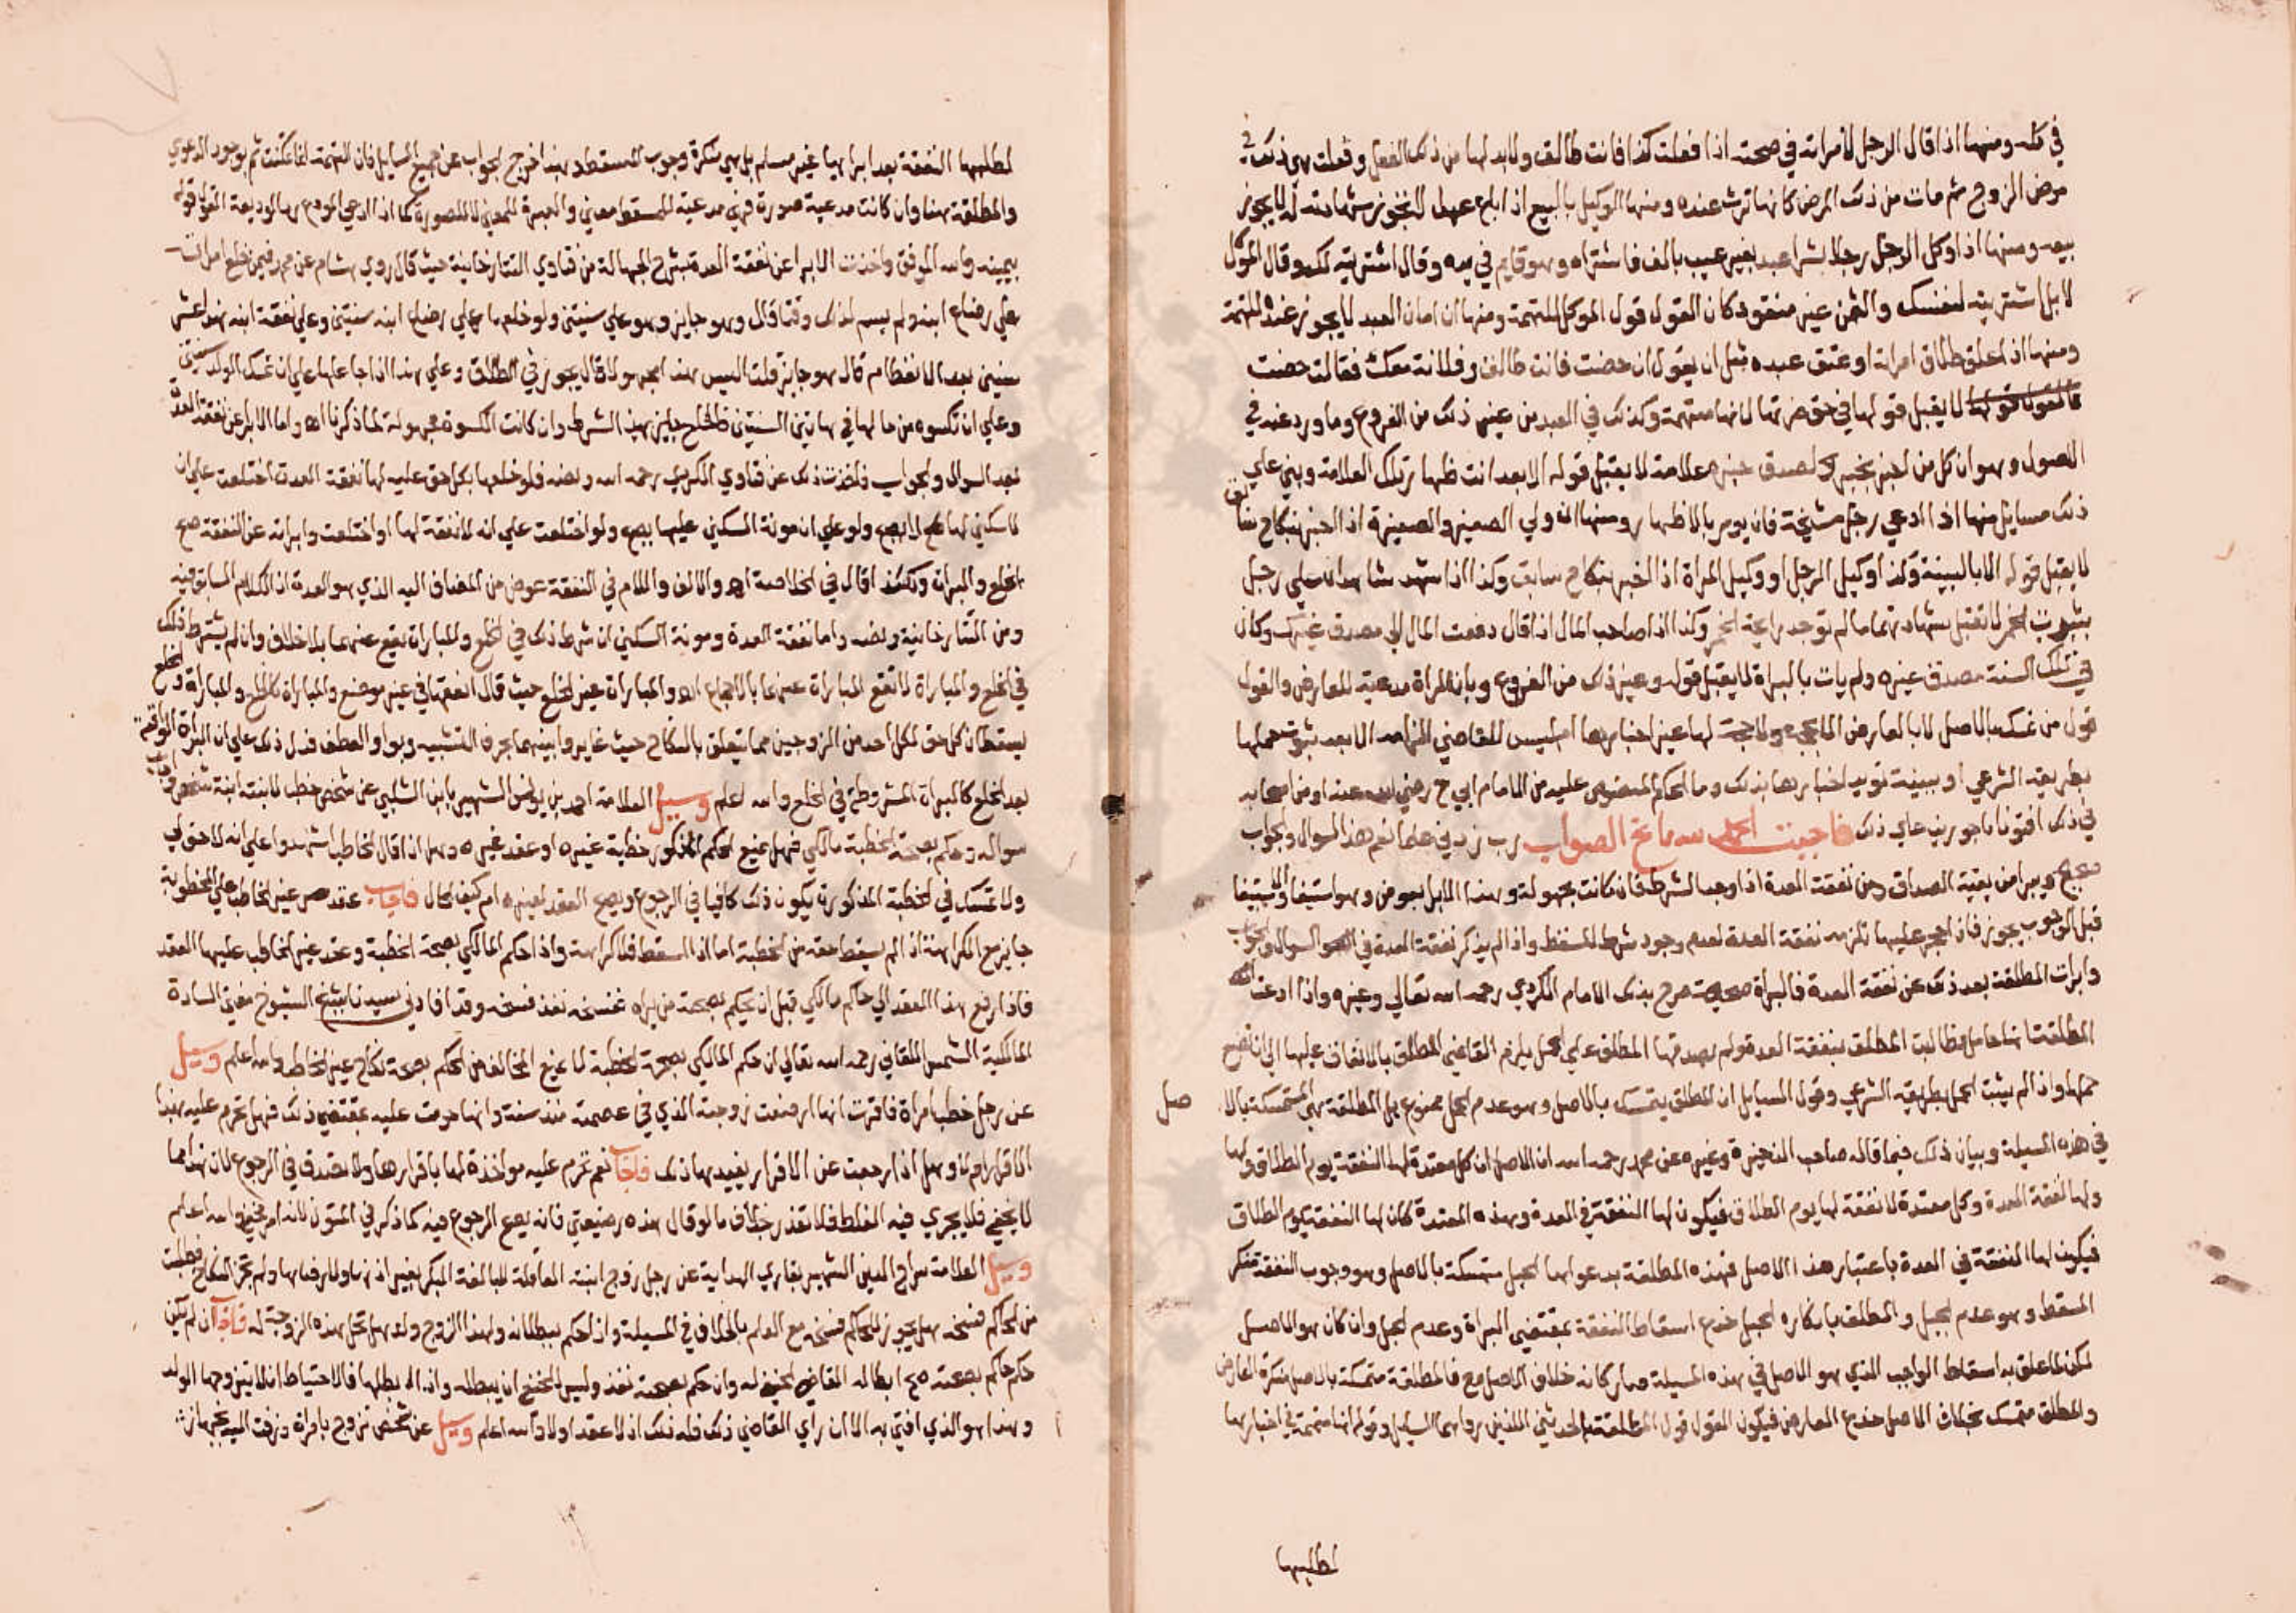 في كله ومنها اذا قال الرجل لامراته في صحته اذا فعلت كذا فانت طالق ولابد لها من ذلك الفعل وفعلت هي ذلك في
مرض الزوج ثم مات من ذلك المرض كانها ترث عنده ومنها الوكيل بالبيع اذا باع عبدا لا تجوز شهادته له لا يجوز
بيعه ومنها اذا وكل الرجل رجلا بشرا عبد بغير عيب بالف فاشتراه وهو قايم في يده وقال اشتريته لك وقال الموكل
لا بل اشتريته لنفسك والثمن غير منقود كان القول قول الموكل للتهمة ومنها ان امان العبد لا يجوز عنده للتهمة
ومنها اذا علق طلاق امراته او عتق عبده مثل ان يقول ان حضت فانت طالق وفلانة معك فقالت حضت
لا يقبل قولها في حق ضرتها لانها متهمة وكذلك في العبد من غير ذلك من الفروع وما ورد عنه في
الاصول وهو ان كل من اخبر بخبر لصدق خبره علامة لا يقبل قوله الا بعد اظهار تلك العلامة وبني علي
ذلك مسايل منها اذا ادعي رجل مشيخة فانه يومر بالاظهار ومنها ان ولي الصغير والصغيرة اذا اخبر بنكاح سابق
لا يقبل قوله الا بالبينة وكذا وكيل الرجل او وكيل المراة اذا اخبر بنكاح سابق وكذا اذا شهد شاهدان علي رجل
بشرب الخمر لا تقبل شهادتهما ما لم توجد رايحة الخمر وكذا اذا صاحب المال اذا قال دفعت المال الي مصدق غيرك وكان
في تلك السنة مصدق غيره ولم يات بالبراة لا يقبل قوله وغير ذلك من الفروع وبان المراة مدعية للعارض والقول
قول من تمسك بالاصل لا بالعارض الا بحجة ولا حجة لها غير اخبارها ليس للقاضي الزامه الا بعد ثبوت حملها
بطريقه الشرعي او ببينة تويد اخبارها بذلك وما الحكم المنصوص عليه من الامام ابي ح رضي الله عنه او من اصحابه
في ذلك افتونا ماجورين علي ذلك فاجبت الحمد لله مانح الصواب رب زدني علما نعم هذا السوال والجواب
صحيح ويبرا من بقية الصداق ومن نفقة العدة اذا وجد الشرط فان كانت مجهولة وهذا الابرا بعوض وهو استيفا والاستيفا
قبل الوجوب يجوز فاذا لم تجب عليها تلزمه نفقة العدة لعدم وجود شرط المسقط واذا لم يذكر نفقة العدة في السوال والجواب
وابرات المطلقة بعد ذلك عن نفقة العدة فالبراة صحيحة صرح بذلك الامام الكردي رحمه الله تعالي وغيره واذا ادعت
المطلقة انها حامل وطالبت المطلق بنفقة العدة ولم يصدقها المطلق علي الحمل يلزم القاضي المطلق بالانفاق عليها الي ان تضع
حملها واذا لم يثبت الحمل بطريقه الشرعي وقول السايل ان المطلق يتمسك بالاصل وهو عدم الحمل ممنوع بل المطلقة هي المتمسكة بالا
صل
في هذه المسيلة وبيان ذلك فيما قاله صاحب الذخيرة وغيره عن محمد رحمه الله ان الاصل ان كل معتدة لها النفقة يوم الطلاق ولها
ولها نفقة العدة وكل معتدة لا نفقة لها يوم الطلاق فيكون لها النفقة في العدة وهذه المعتدة كان لها النفقة يوم الطلاق
فيكون لها النفقة في العدة باعتبار هذا الاصل فهذه المطلقة بدعواها الحبل متمسكة بالاصل وهو وجوب النفقة منكر
المسقط وهو عدم الحبل والمطلق بانكاره الحبل مدع اسقاط النفقة بمقتضي البراة وعدم الحبل وان كان هو الاصل
لكن لما علق به اسقاط الواجب الذي هو الاصل في هذه المسيلة صار كانه خلاف الاصل مع فالمطلقة متمسكة بالاصل منكرة العارض
والمطلق متمسك بخلاف الاصل مدع العارض فيكون القول قول المطلقة والحديثين اللذين رواهما السايل وقوله انها متهمة في اخبارها
لطلبها
لطلبها النفقة بعد ابرايها غير مسلم بل هي منكرة وجوب المسقط وبهذا خرج الجواب عن جميع المسايل فان التهمة انما تمكنت ثم بوجود الدعوي
والمطلقة هنا وان كانت مدعية صورة فهي مدعية للمسقط معني والعبرة للمعني لا للصورة كما اذا ادعي المودع رد الوديعة القول قوله
بيمينه والله الموفق واخذت الابرا عن نفقة العدة بشرح الجهالة من فتاوي التتارخانية حيث قال روي هشام عن محمد فيمن خلع امراته
علي رضاع ابنه ولم يسم لذلك وقتا قال وهو جايز وهو علي سنتين ولو خلعها علي رضاع ابنه سنتين وعلي نفقة ابنه هذا عشر
سنين بعد الانفطام قال هو جايز قلت اليس هذا مجهولا قال يجوز في الطلاق وعلي هذا اذا جاعلها علي ان تمسك الولد سنتين
وعلي ان تكسوه من مالها في هاتين السنتين فالخلع جايز بهذا الشرط وان كانت الكسوة مجهولة لما ذكرنا اه واما الابرا عن نفقة العدة
بعد السوال والجواب فاخذت ذلك عن فتاوي الكردي رحمه الله ونصه فلو خلعها بكل حق عليه لها نفقة العدة اختلعت علي ان
لا سكني لها لا يصح ولو علي ان مونة السكني عليها يصح ولو اختلعت علي انه لا نفقة لها او اختلعت وابراته عن النفقة صح
الخلع والبراة وكذا قال في الخلاصة اه والالف واللام في النفقة عوض من المضاف اليه الذي هو العدة اذ الكلام السابق فيه
ومن التتارخانية ونصه واما نفقة العدة ومونة السكني ان شرط ذلك في الخلع والمباراة يقع عنهما بلا خلاف وان لم يشترط ذلك
في الخلع والمباراة لا تقع المباراة عنهما بالاجماع اه والمباراة غير الخلع حيث قال الفقها في غير موضع والمباراة كالخلع والمباراة والخلع
يسقطان كل حق لكل احد من الزوجين مما يتعلق بالنكاح حيث غايروا بينهما بحرف التشبيه وبواو العطف فدل ذلك علي ان البراة الواقعة
بعد الخلع كالبراة المشروطة في الخلع والله اعلم وسيل العلامة احمد بن يونس الشهير بابن الشلبي عن شخص خطب لابنه ابنة شخص فاجاب
سواله وحكم بصحة الخطبة مالكي فهل يمنع الحكم المذكور خطبة غيره او عقد غيره وهل اذا قال الخاطب اشهدوا علي انه لا حق لي
ولا تمسك في الخطبة المذكورة يكون ذلك كافيا في الرجوع ويصح العقد لغيره ام كيف الحال فاجاب عقد غير الخاطب علي المخطوبة
جايز مع الكراهة اذا لم يسقط حقه من الخطبة اما اذا اسقط فلا كراهة واذا حكم المالكي بصحة الخطبة وعقد غير الخاطب عليها العقد
فاذا رفع هذا العقد الي حاكم مالكي قبل ان يحكم بصحته من يراه ففسخه نفذ فسخه وقد افادني سيدنا شيخ الشيوخ مفتي السادة
المالكية الشمس اللقاني رحمه الله تعالي ان حكم المالكي بصحة الخطبة لا يمنع المخالف من الحكم بصحة نكاح غير الخاطب والله اعلم وسيل
عن رجل خطب امراة فاقرت انها ارضعت زوجته الذي في عصمته منذ سنة وانها حرمت عليه بمقتضي ذلك فهل تحرم عليه بهذا
الاقرار ام لا وهل اذا رجعت عن الاقرار يفيدها ذلك فاجاب نعم تحرم عليه مواخذة لها باقرارها ولا تصدق في الرجوع لان هذا مما
لا يخفي فلا يجري فيه الغلط فلا تعذر بخلاف ما لو قال هذه رضيعتي فانه يصح الرجوع فيه كما ذكر في المتون لانه امر يخفي والله اعلم
وسيل العلامة سراج الدين الشهير بقاري الهداية عن رجل زوج ابنته العاقلة البالغة البكر بغير اذنها ولا رضاها ولم تجز النكاح فطلبت
من الحاكم فسخه هل يجوز للحاكم فسخه مع العلم بالخلاف في المسيلة واذا حكم ببطلانه ولهذا الزوج ولد هل تحل هذه الزوجة له فاجاب ان لم يكن
حكم حاكم بصحته صح ابطاله القاضي الحنفي له وان حكم بصحته نفذ وليس للحنفي ان يبطله واذا لم يبطلها فالاحتياط ان لا يتزوجها الولد
وهذا هو الذي افتي به الا ان راي القاضي ذلك فله ذلك اذ لا عقد اولا والله اعلم وسيل عن شخص تزوج بامراة وزفت اليه بجهاز